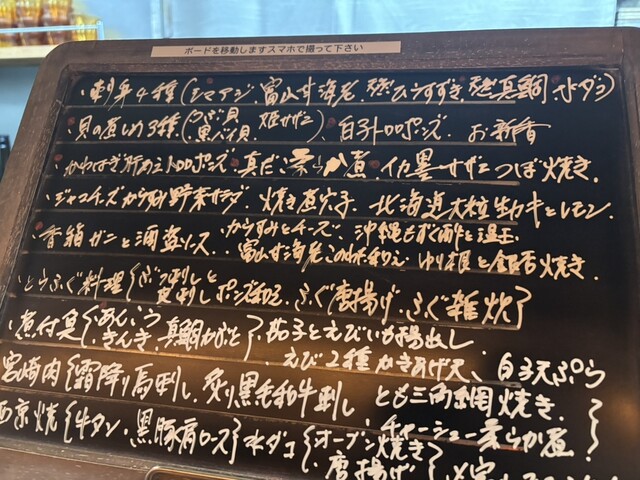 ボードを移動しますスマホで撮って下さい
・刺身4種(シマアジ、富山甘海老、炙ひらすずき、炙真鯛、水ダコ)
・貝の煮しめ3種(つぶ貝、黒バイ貝、姫サザエ)、白子トロロポンズ、お新香
・かわはぎ肝あえトロロポンズ、真だこ柔らか煮、イカ墨サザエつぼ焼き、
・ジャコチーズからすみ野菜サラダ、焼き煮穴子、北海道大粒生カキとレモン、
・香箱ガニと酒盗ソース、からすみとチーズ、沖縄もずく酢と温玉
富山甘海老このわた和え、ゆり根と銀杏焼き、
・とらふぐ料理{ぶつ刺しと皮刺しポンズ和え、ふぐ唐揚げ、ふぐ雑炊}
・煮付魚{あんこう、きんき、真鯛かぶと}・茄子とえびいも揚出し
えび2種かきあげ天、白子天ぷら
宮崎肉{霜降り馬刺し、炙り黒毛和牛刺し、とも三角網焼き、
西京焼{牛タン、黒豚肩ロース}水ダコ{オーブン焼き・唐揚げ}チャーシュー柔らか煮}